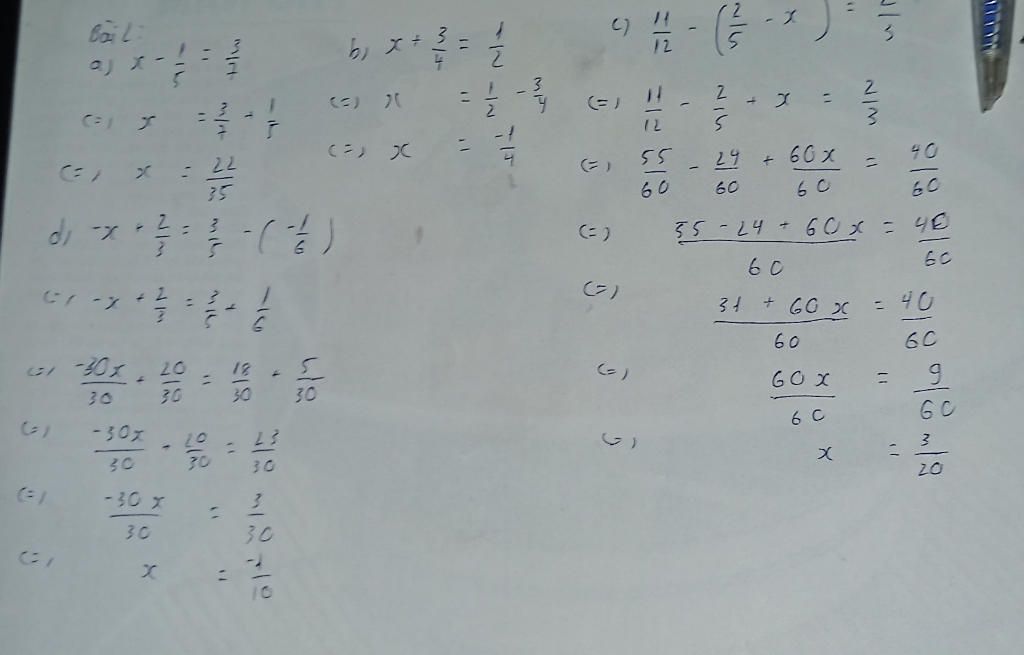 Bài 2:
a) x - 1/5 = 3/7
(=) x = 3/7 + 1/5
(=) x = 22/35
b) x + 3/4 = 1/2
(=) x = 1/2 - 3/4
(=) x = -1/4
c) 11/12 - (2/5 - x) = 2/3
(=) 11/12 - 2/5 + x = 2/3
(=) 55/60 - 24/60 + 60x/60 = 40/60
(=) 55 - 24 + 60x/60 = 40/60
(=) 31 + 60x/60 = 40/60
(=) 60x/60 = 9/60
(=) x = 3/20
d) -x + 2/3 = 3/5 - (-1/6)
(=) -x + 2/3 = 3/5 + 1/6
(=) -30x/30 + 20/30 = 18/30 + 5/30
(=) -30x/30 + 20/30 = 23/30
(=) -30x/30 = 3/30
(=) x = -1/10